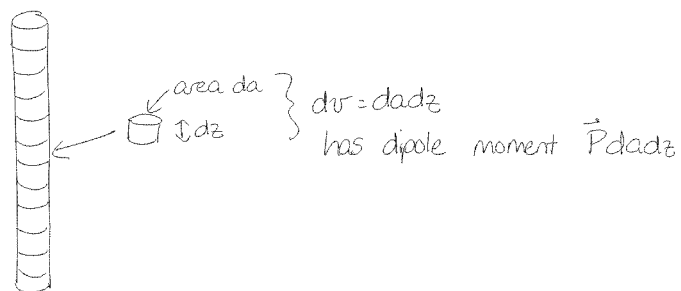 area da
dv = dadz
↕ dz
has dipole moment P⃗dadz